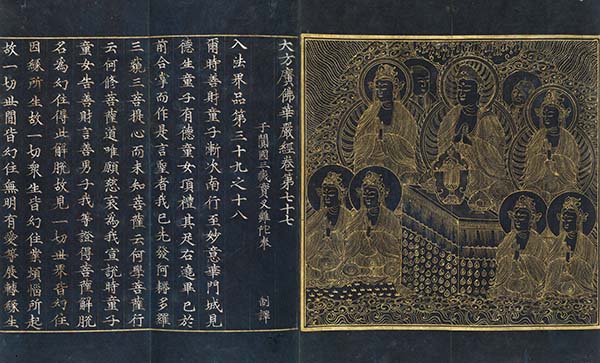 大方廣佛華嚴經卷第七十七
于闐國三藏實叉難陀奉　制譯
入法界品第三十九之十八
爾時善財童子漸次南行至妙意華門城見
德生童子有德童女頂禮其足右遶畢已於
前合掌而作是言聖者我已先發阿耨多羅
三藐三菩提心而未知菩薩云何學菩薩行
云何修菩薩道唯願慈哀為我宣說時童子
童女告善財言善男子我等證得菩薩解脫
名為幻住得此解脫故見一切世界皆幻住
因緣所生故一切眾生皆幻住業煩惱所起
故一切世間皆幻住無明有愛等展轉緣生